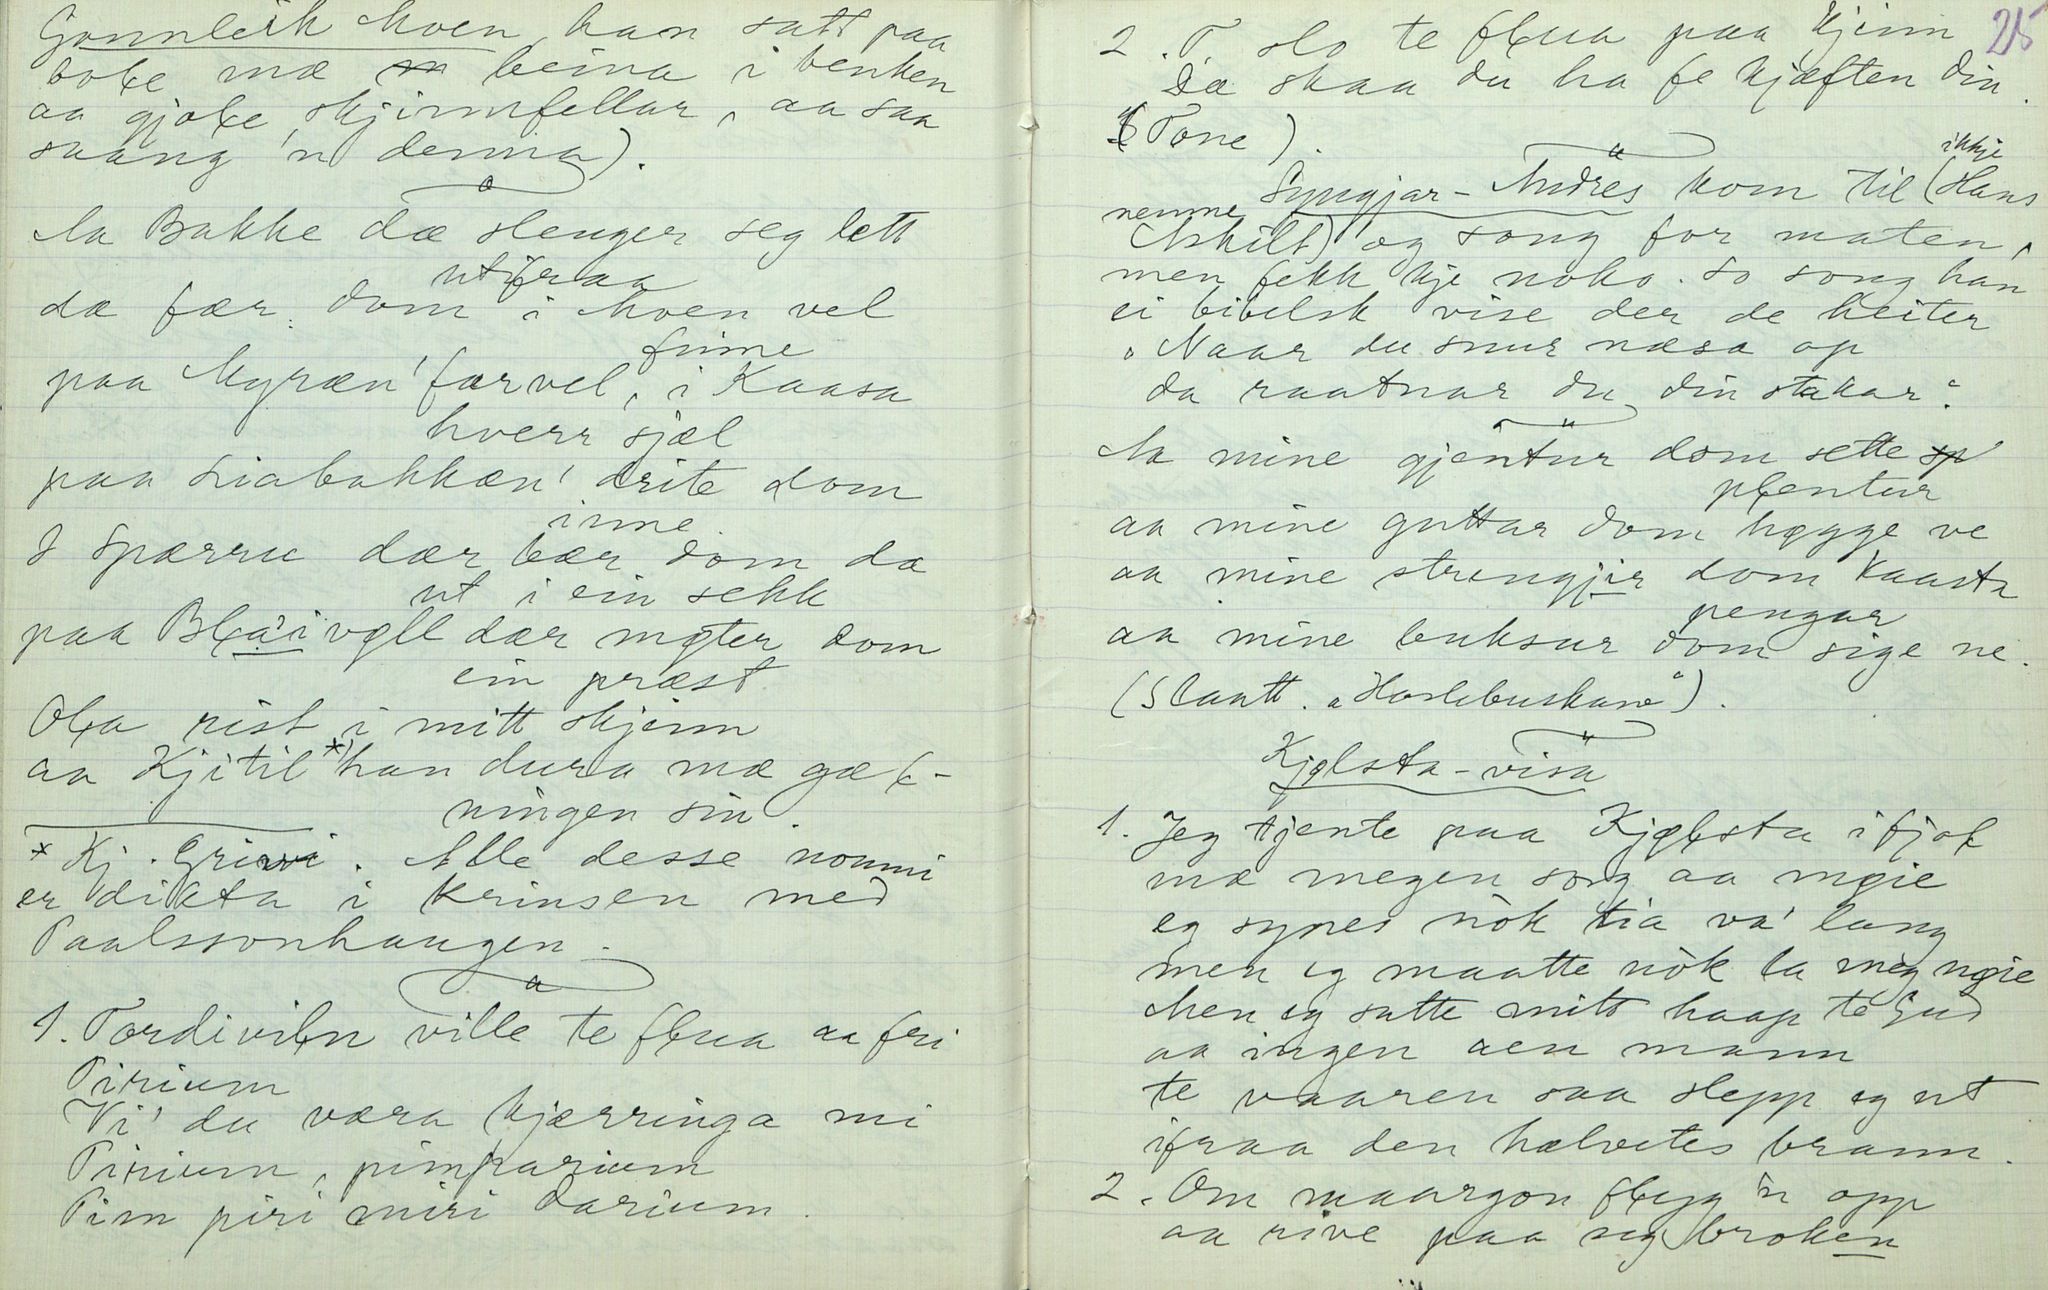 Gonnleik Moen, han satt paa
bole mæ beina i benken
aa gjole skjinnfellar, aa saa
saang 'n denna).
Aa Bakke dæ slenger seg lett
utifraa
dæ fær dom i Moen vel
finne
paa Myræn' farvel, i Kaasa
hverr sjæl
paa Liabakkæn' drite dom
inne.
I Spærru dær bær dom dæ
ut i ein sekk
paa Blaaivøll dær møter dom
ein præst
Ola rist i mitt skjinn
aa Kjitil* han dura mæ gæl-
ningen sin.
* Kj. Grivi. Alle desse nommi
er dikta i krinsen med
Paalssonhaugen.
1. Tordiviln ville te flua aa fri
Pirium
Vi' du væra kjærringa mi
Pirium, pimparium
Pim piri miri darium.
25
2. T. slo te flua paa kjinn
Dæ skaa du ha fe kjæften din.
(Tone).
Syngjar-Andres kom til (Hans ikkje
nemne
Askilt) og song for maten,
men fekk kje noko. So song han
ei bibelsk vise der de heiter
„Naar du snur næsa op
da raatnar du, din stakar."
Aa mine gjentur dom sette
plentur
aa mine guttar dom høgge ve
aa mine strengjir dom kaasta
pengar
aa mine buksur dom sige ne.
(Slaatt. „Haslebuskane").
Kjølsta-visa
1. Jeg tjente paa Kjølsta i fjol
mæ megen sorg aa møie
eg synes nok tia va' lang
men eg maatte nok la meg nøie
Men eg satte mitt haap te Gud
aa ingen aen mann
te vaaren saa slepp eg ut
ifraa den hælvetes brann.
2. Om maargon flyg 'n opp
aa rive paa seg broken